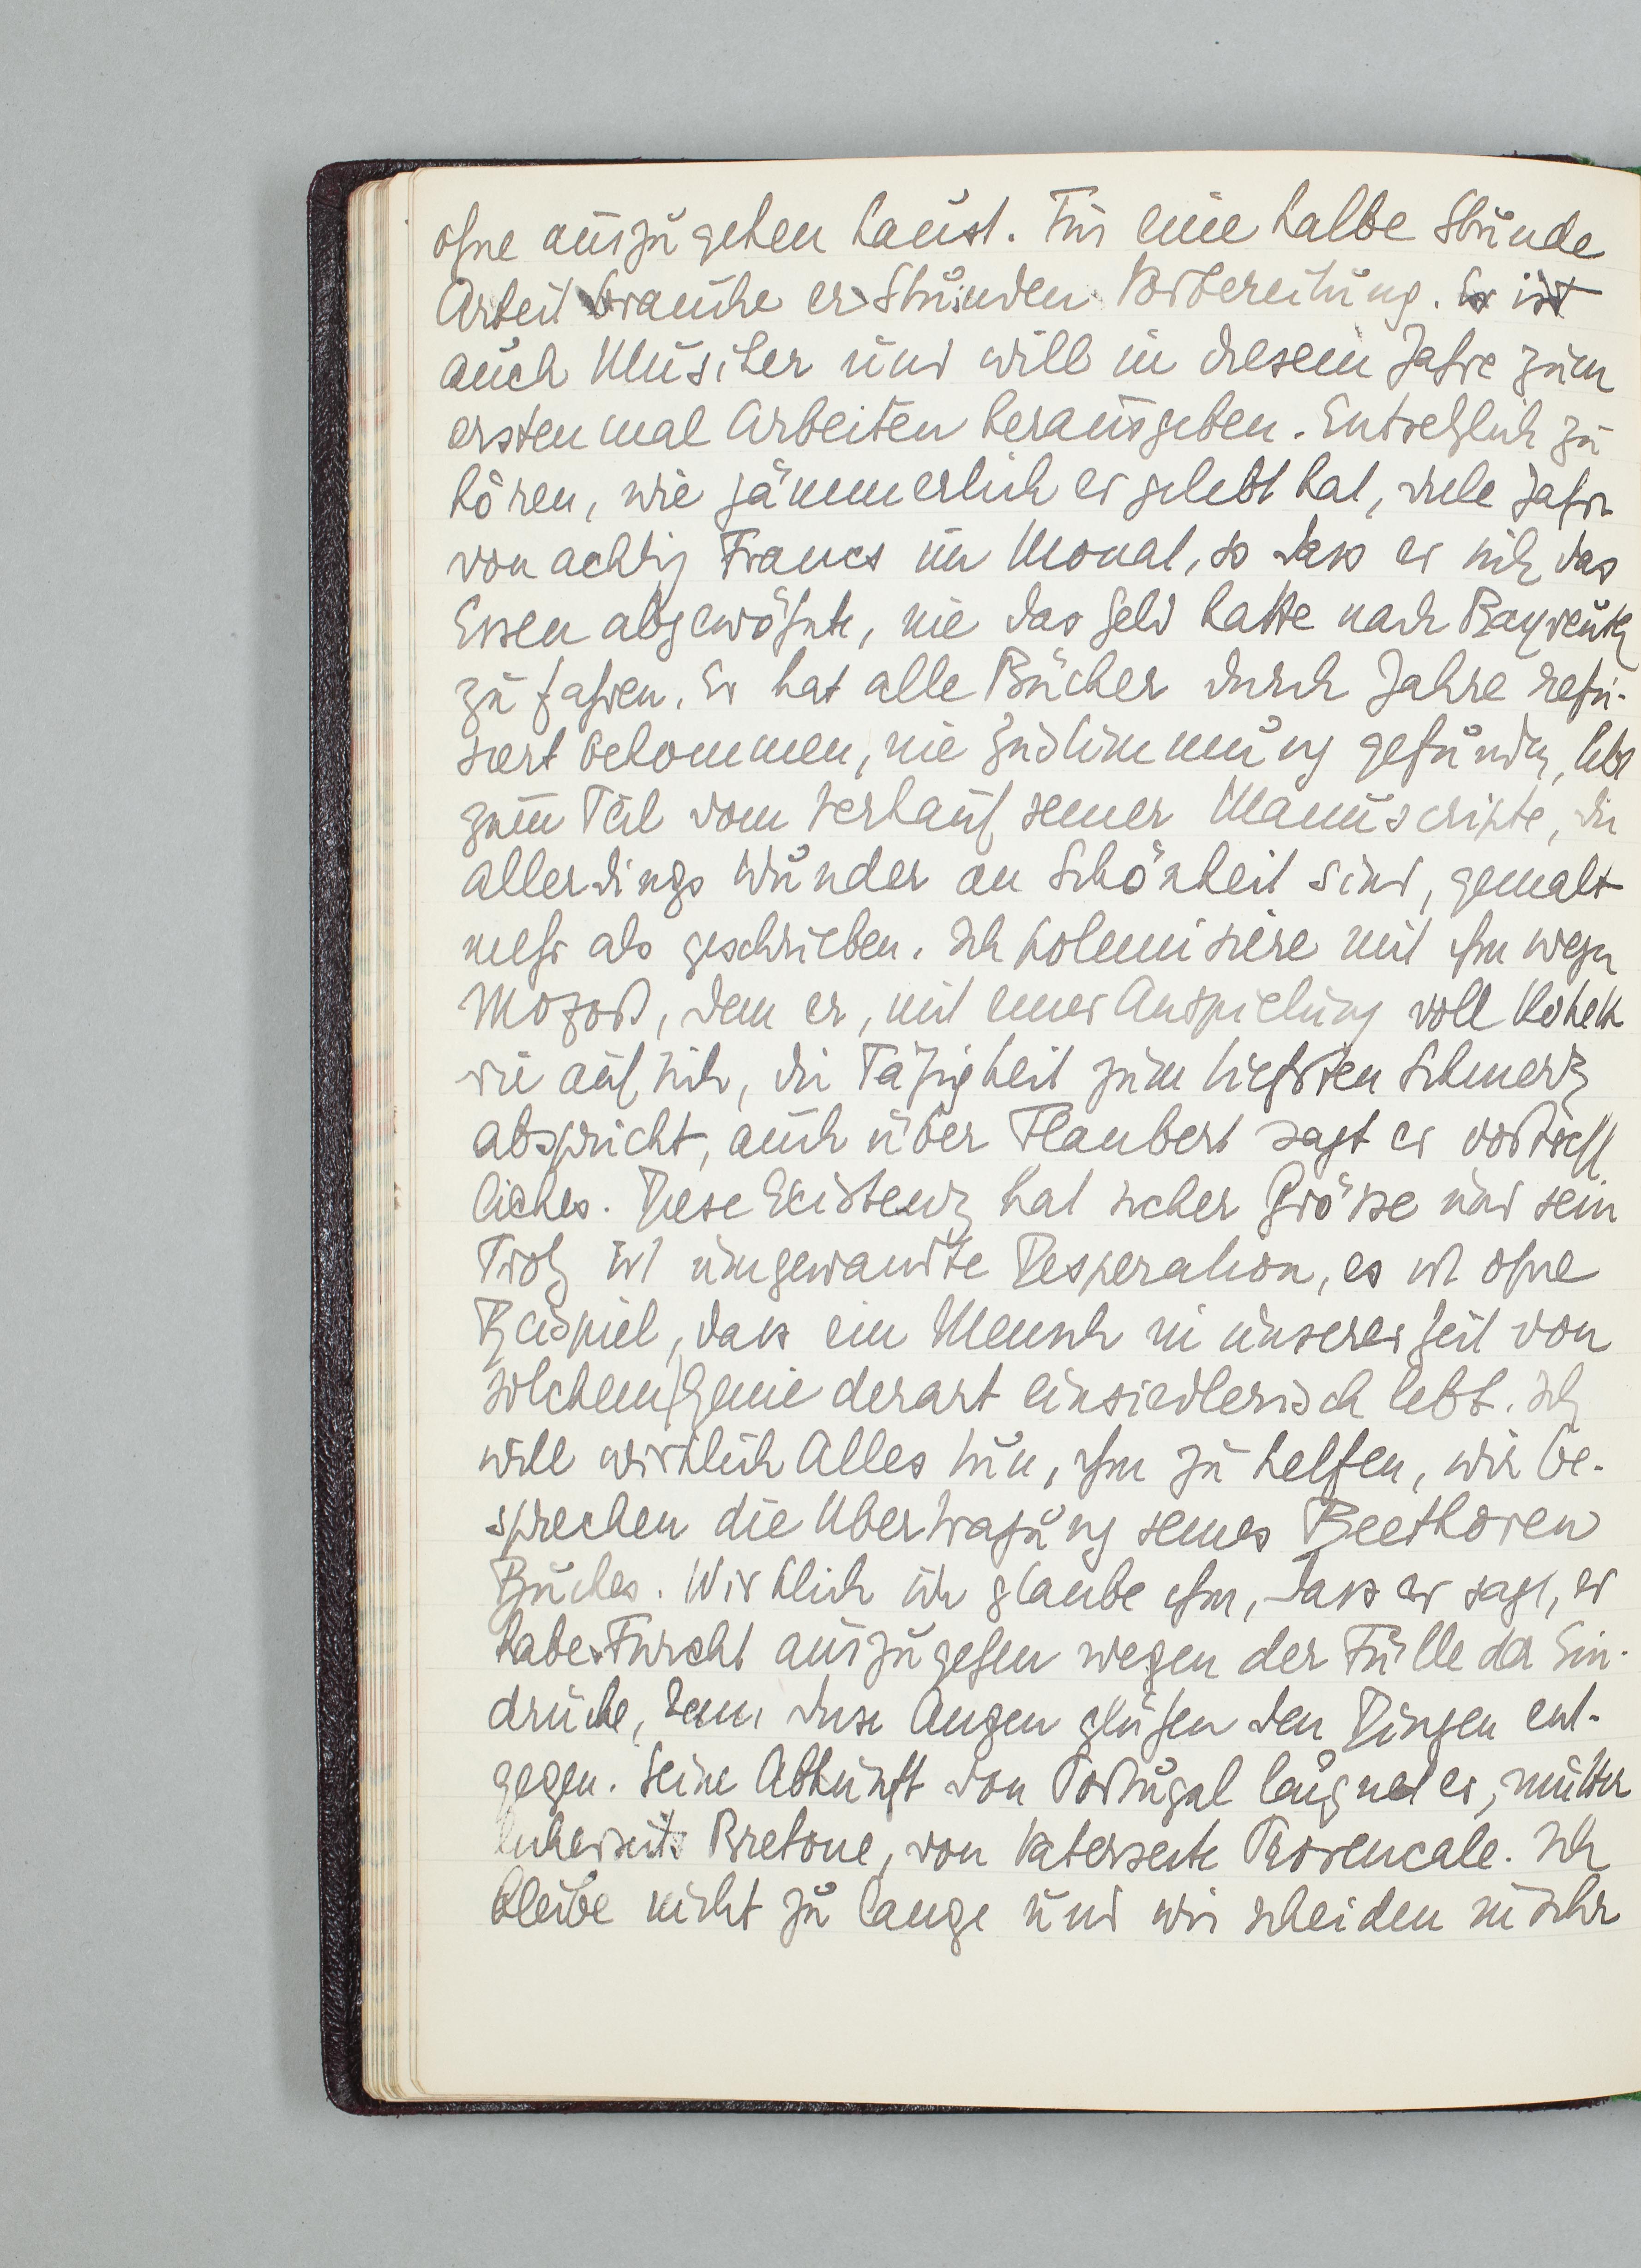 ohne auszugehen haust. Für eine halbe Stunde
Arbeit brauche er Stunden Vorbereitung. Er ist
auch Musiker und will in diesem Jahre zum
erstenmal Arbeiten herausgeben. Entsetzlich zu
hören, wie jämmerlich er gelebt hat, viele Jahre
von achtzig Francs im Monat, so dass er sich das
Essen abgewöhnte, nie das Geld hatte nach Bayreuth
zu fahren. Er hat alle Bücher durch Jahre refü-
siert bekommen, nie Zustimmung gefunden, lebt
zum Teil vom Verkauf seiner Manuscripte, die
allerdings Wunder an Schönheit sind, gemalt
mehr als geschrieben. Ich polemisiere mit ihm wegen
Mozart, dem er, mit einer Anspielung voll Koket-
rie auf sich, die Fähigkeit zum tiefsten Schmerz
abspricht, auch über Flaubert sagt er vortreff
liches. Diese Existenz hat sicher Grösse und sein
Trotz ist umgewandte Desperation, es ist ohne
Beispiel, dass ein Mensch in unserer Zeit von
solchem Genie derart einsiedlerisch lebt. Ich
will wirklich Alles tun, ihm zu helfen, wir be-
sprechen die Übertragung seines Beethoven
Buches. Wirklich ich glaube ihm, dass er sagt, er
habe Furcht auszugehen wegen der Fülle der Ein-
drücke, denn diese Augen glühen den Dingen ent-
gegen. Seine Abkunft von Portugal läugnet er, mütter
licherseits Bretone, von Vaterseite Provencale. Ich
bleibe nicht zu lange und wir scheiden in sehr